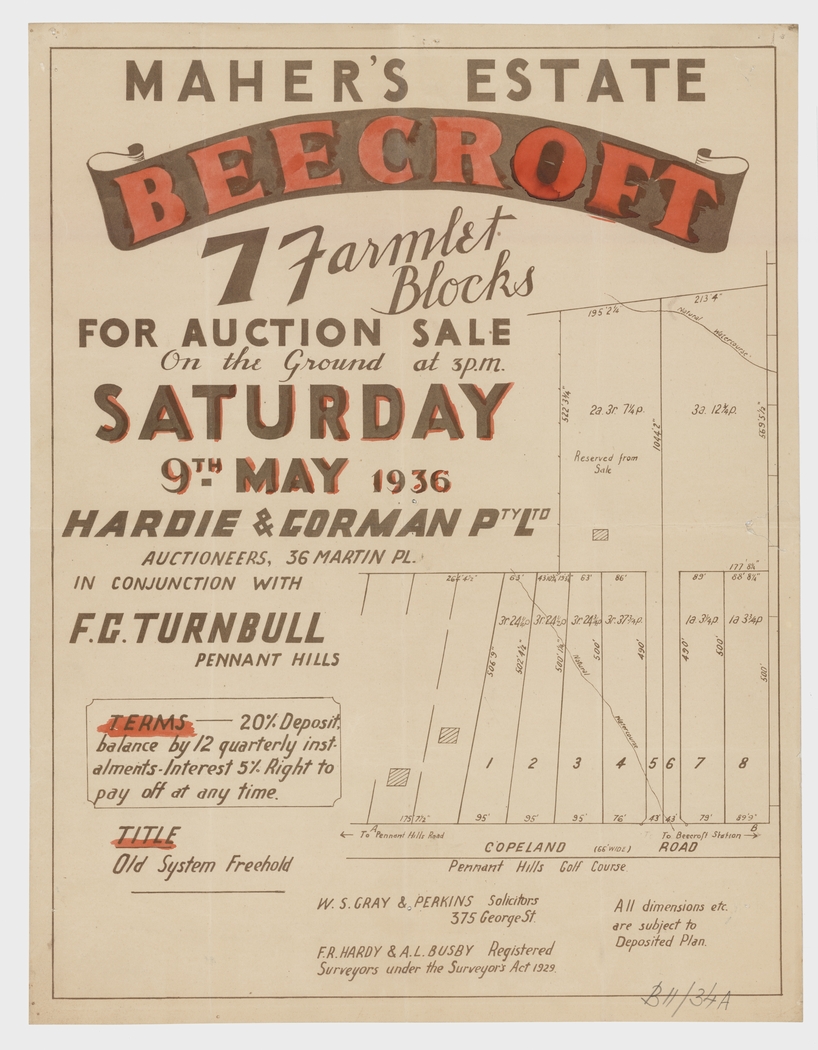 MAHER'S ESTATE
BEECROFT
7 Farmlet
Blocks
FOR AUCTION SALE
On the Ground at 3p.m.
SATURDAY
9TH MAY 1936
HARDIE & GORMAN PTY LTD
AUCTIONEERS, 36 MARTIN PL.
IN CONJUNCTION WITH
F.G. TURNBULL
PENNANT HILLS
TERMS — 20% Deposit,
balance by 12 quarterly inst-
alments-Interest 5% Right to
pay off at any time.
TITLE
Old System Freehold
195' 2¼
213' 4"
Natural Watercourse
522' 3¾"
2a. 3r. 7¼p.
1044' 2"
3a. 12¾p.
569' 5½"
Reserved from
Sale
177' 8¾"
63' 63' 86' 89' 88' 8¼"
3r. 24½p. 3r. 24½p. 3r. 24½p. 3r. 37¼p. 1a 3¼p 1a 3¼p
506' 9" 502' 4½" 500' 1¼" 500' 490' 490' 500' 500'
Natural watercourse
1 2 3 4 5 6 7 8
175' 7½" 95' 95' 95' 76' 43' 43' 79' 89' 9"
A B
← To Pennant Hills Road To Beecroft Station →
COPELAND (66' WIDE) ROAD
Pennant Hills Golf Course
W. S. GRAY & PERKINS Solicitors
375 George St.
F.R. HARDY & A.L. BUSBY Registered
Surveyors under the Surveyor's Act 1929.
All dimensions etc.
are subject to
Deposited Plan.
B11/34A